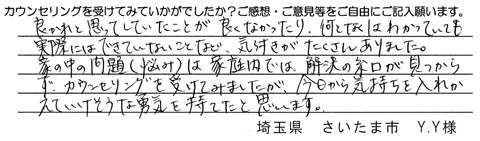 カウンセリングを受けてみていかがでしたか？ご感想・ご意見等をご自由にご記入願います。
良かれと思ってしていたことが良くなかったり、何となくはわかっていても
実際にはできていないことなど、気付きがたくさんありました。
家の中の問題(悩み)は家庭内では、解決の糸口が見つから
ずカウンセリングを受けてみましたが、今日から気持ちを入れか
えていけそうな勇気を持てたと思います。
埼玉県　さいたま市　Y.Y様